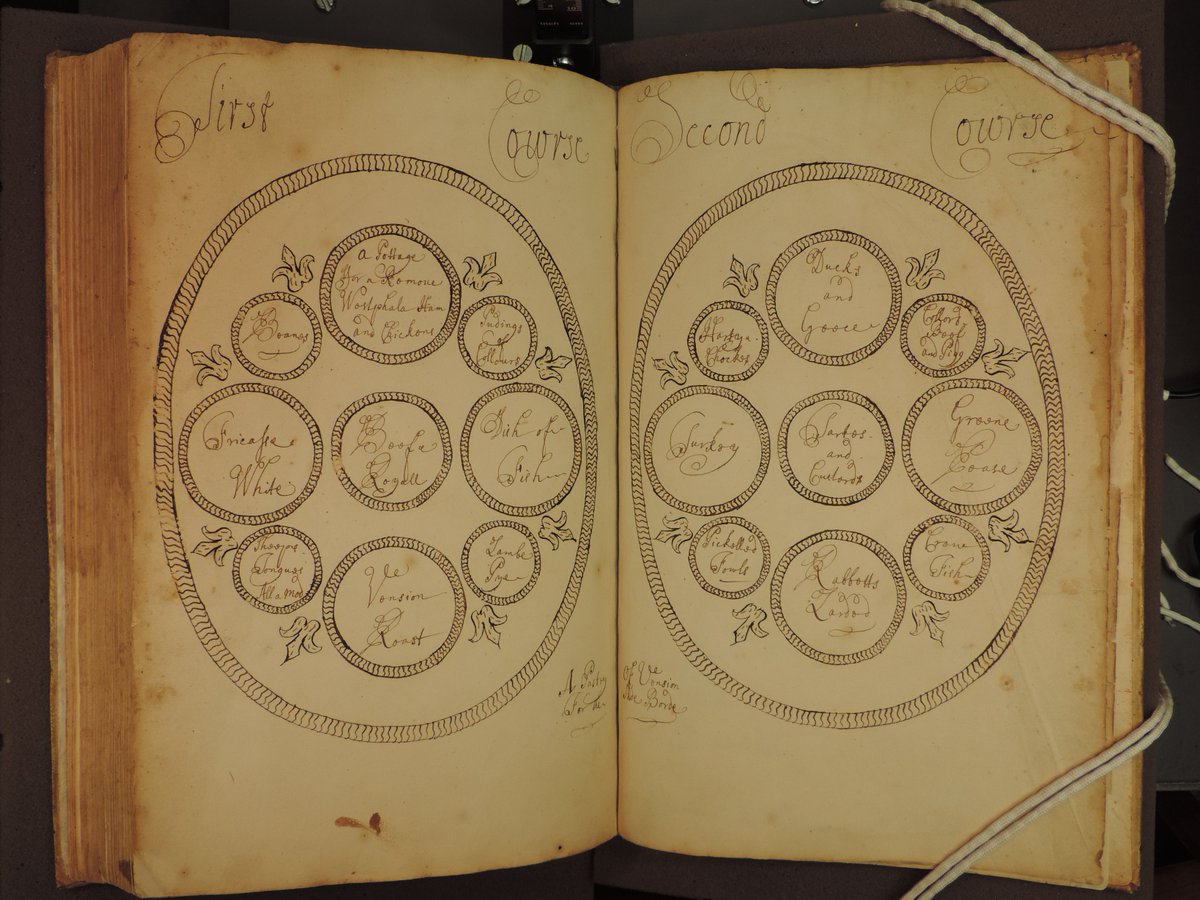 First Course
A Pottage
For a Romove
Westphala Ham
and Chickons
Beanes
Pudings
of
Collours
Fricasse
White
Beefe
Royall
Dish of
Fish
Sheeps
Tongues
All a Mod
Venson
Roast
Lambe
Pye
A Pastry
For the
Second Course
Ducks
and
Geece
Hartey
Chockes
Collard
Beefe
and Pigg
Turkey
Tartes
and
Custards
Greene
Gease
Pickelled
Fowls
Rabbotts
Larded
Crane
Fish
of Venson
Side Borde